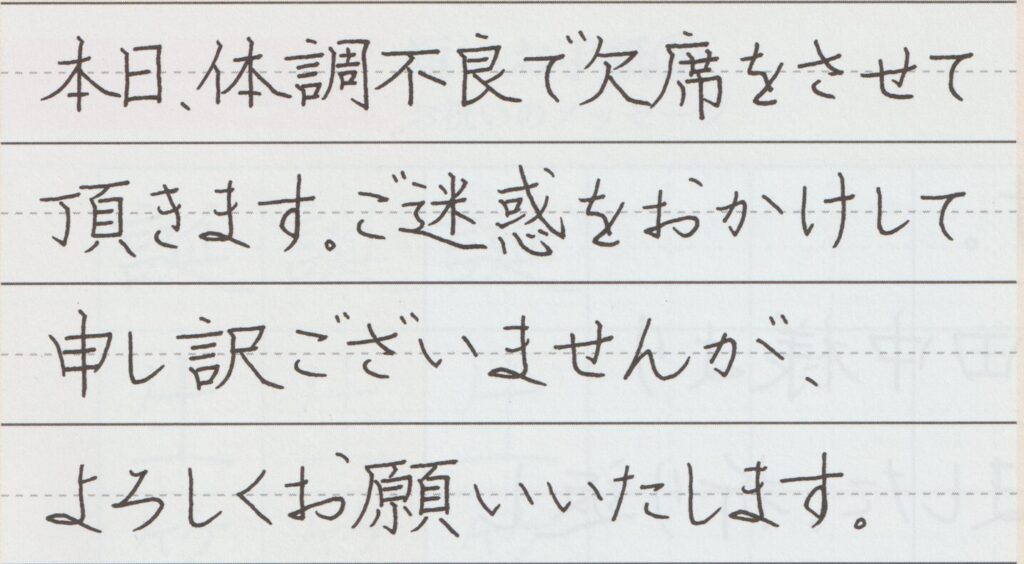 本日、体調不良で欠席をさせて
頂きます。ご迷惑をおかけして
申し訳ございませんが、
よろしくお願いいたします。